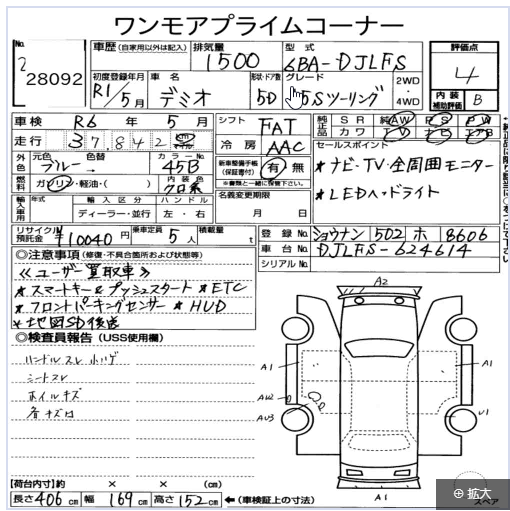 ワンモアプライムコーナー
No. 28092
車歴 (自家用以外は記入) 排気量 1500 型式 6BA-DJLFS 評価点 4
初度登録年月 R1/5月 車名 デミオ 形状・ドア数 5D グレード 15Sツーリング 2WD・4WD 内装補助評価 B
車検 R6年 5月 シフト FAT 純正部品 SR 純AW PS PW
カワ TV ナビ エアB
走行 37,842 km マイル 冷房 AAC セールスポイント
外色 元色 ブルー 色替 カラーNo. 45B 新車整備手帳(保証書付) 有・無 ★ナビ・TV・全周囲モニター
燃料 ガソリン・軽油・( ) 内装色 クロ系 ※書類と一緒に保管下さい。 ★LEDヘッドライト
輸入車用 年式 輸入区分 ディーラー・並行 ハンドル 左・右 名義変更期限 月 日
リサイクル預託金 ¥10040円 乗車定員 5人 積載量 t 登録No. ショウナン 502 ホ 8606
車台No. DJLFS-624614
シリアルNo.
◎注意事項 (修復・不具合箇所および状態等)
≪ユーザー買取車≫
★スマートキー&プッシュスタート ★ETC
★フロントパーキングセンサー ★HUD
★地図SD後送
◎検査員報告 (USS使用欄)
ハンドルスレ 小ハゲ
シートスレ
ホイルキズ
各キズ凹
A2
A1
A1
AW2
AU3
U1
A1
スペア
【荷台内寸】約 × × (cm)
長さ 406 cm 幅 169 cm 高さ 152 cm ←(車検証上の寸法)
拡大